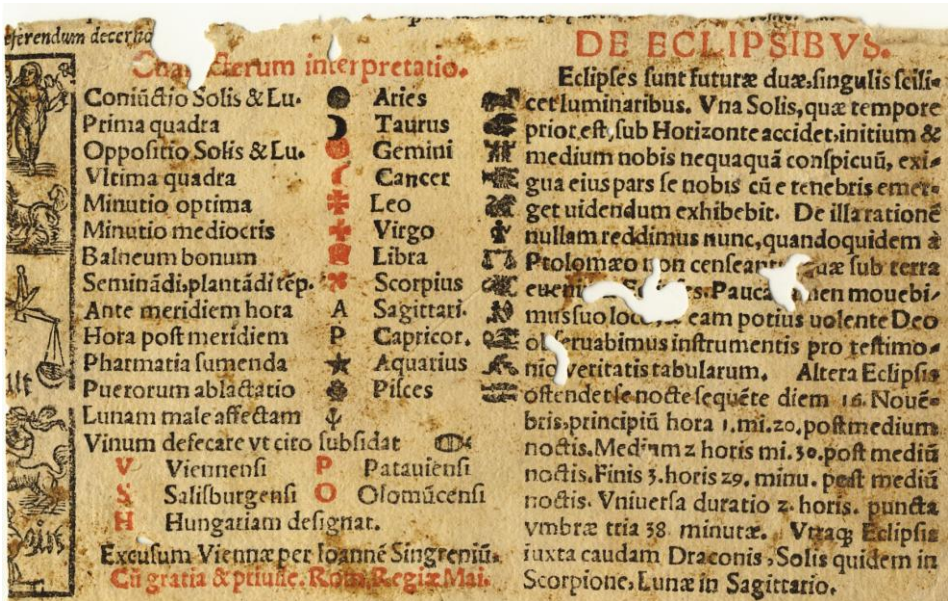 eferendum decer
Cha cterum interpretatio.
Coniũctio Solis & Lu. Aries
Prima quadra Taurus
Oppositio Solis & Lu. Gemini
Vltima quadra Cancer
Minutio optima Leo
Minutio mediocris Virgo
Balneum bonum Libra
Seminãdi,plantãdi tẽp. Scorpius
Ante meridiem hora A Sagittari.
Hora post meridiem P Capricor.
Pharmatia sumenda Aquarius
Puerorum ablactatio Pisces
Lunam male affectam
Vinum defecare vt cito subsidat
V Viennensi P Patauiensi
S Salisburgensi O Olomũcensi
H Hungariam designat.
Excusum Viennæ per Ioannẽ Singreniũ.
Cũ gratia & priuile. Rom. Regiæ Mai.
DE ECLIPSIBVS.
Eclipses sunt futuræ duæ,singulis scili-
cet luminaribus. Vna Solis,quæ tempore
prior est,sub Horizonte accidet,initium &
medium nobis nequaquã conspicuũ, exi-
gua eius pars se nobis cũ e tenebris emer-
get uidendum exhibebit. De illa rationẽ
nullam reddimus nunc,quandoquidem à
Ptolomæo non censeant quæ sub terra
eueni Pauca men mouebi-
mus suo loco, eam potius uolente Deo
obseruabimus instrumentis pro testimo-
nio ueritatis tabularum. Altera Eclipsis
ostendet se nocte sequẽte diem 16. Nouẽ-
bris,principiũ hora 1.mi.20,post medium
noctis.Medium 2 horis mi. 30.post mediũ
noctis.Finis 3.horis 29. minu. post mediũ
noctis. Vniuersa duratio 2. horis. puncta
vmbræ tria 38. minutæ. Vtraq; Eclipsis
iuxta caudam Draconis,Solis quidem in
Scorpione, Lunæ in Sagittario.